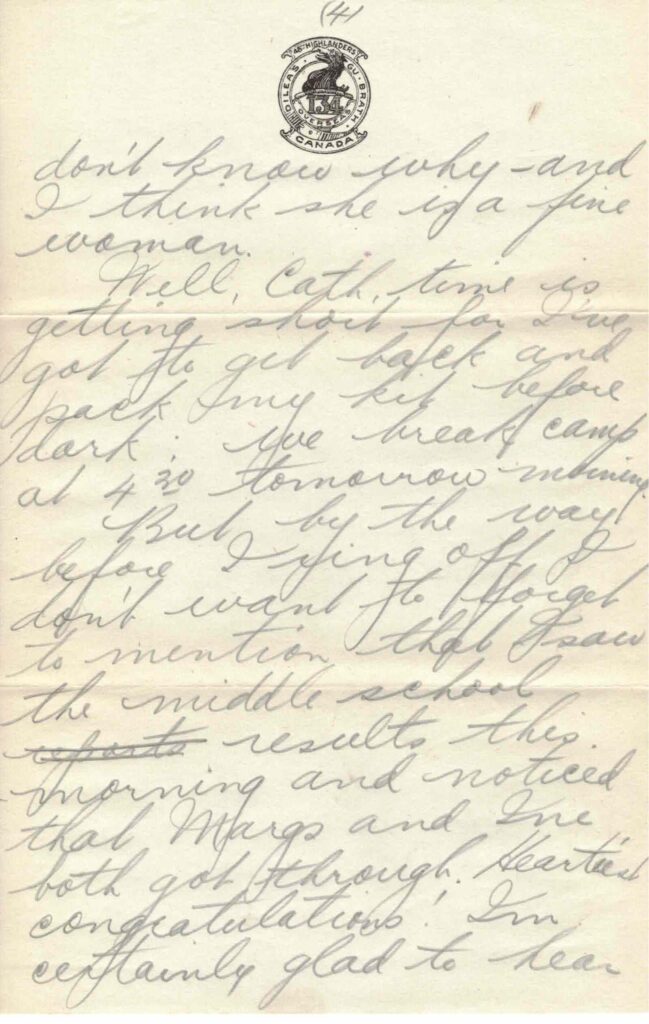 (4)
48TH HIGHLANDERS
DILEAS GU BRATH
134
OVERSEAS
CANADA
don't know why – and
I think she is a fine
woman.
Well, Cath, time is
getting short for I've
got to get back and
pack my kit before
dark; we break camp
at 4 30 tomorrow morning.
But by the way
before I ring off I
don't want to forget
to mention that I saw
the middle school
reports results this
morning and noticed
that Margs and
both got through. Heartiest
congratulations! I'm
certainly glad to hear